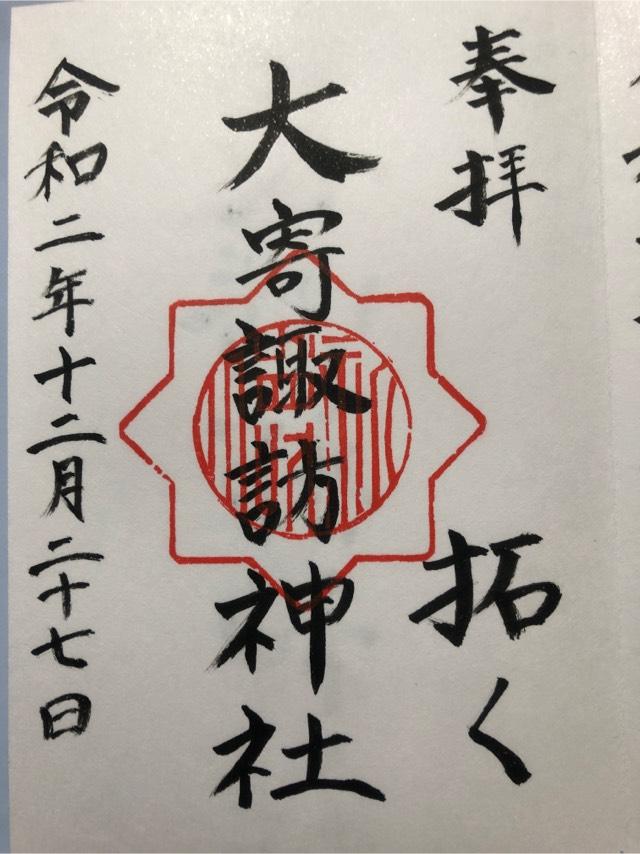 奉拝
拓く
大寄諏訪神社
令和二年十二月二十七日